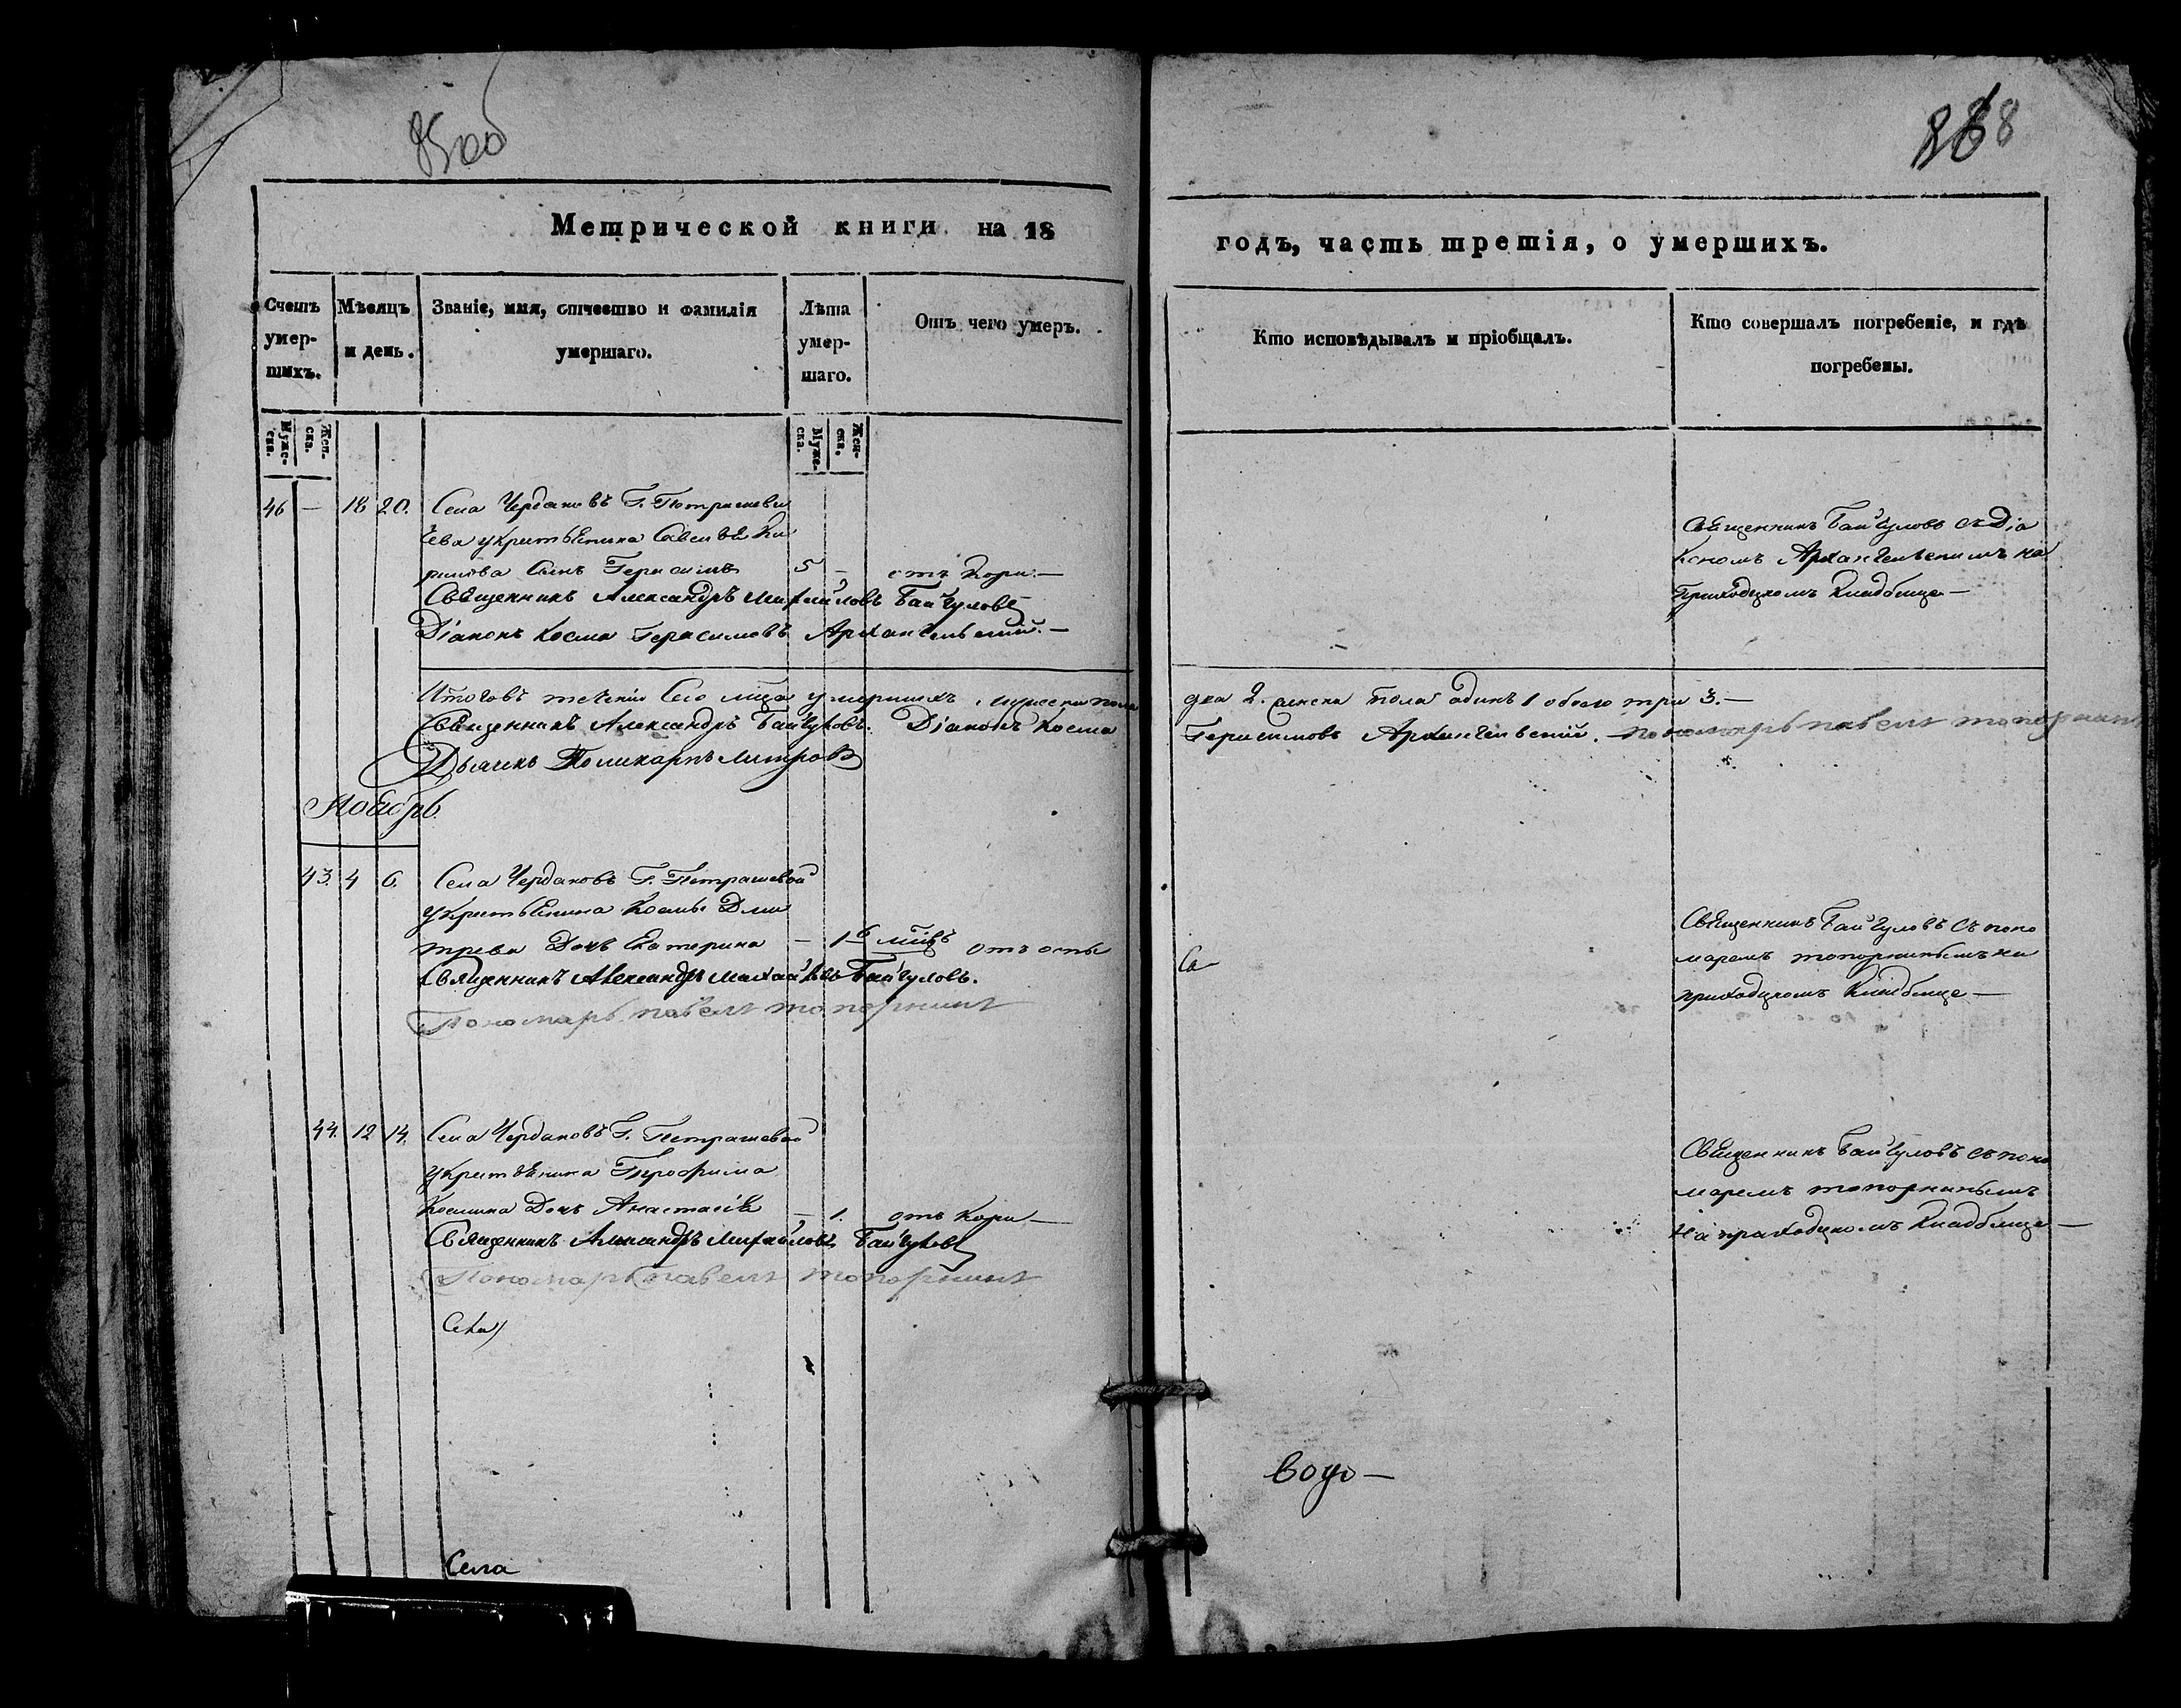 85об
868
Метрической книги на 18
годъ, часть третія, о умершихъ.
Счетъ умер-шихъ.
Мѣсяцъ и день.
Званіе, имя, отчество и фамилія умершаго.
Лѣта умер-шаго.
Отъ чего умеръ.
Кто исповѣдывалъ и пріобщалъ.
Кто совершалъ погребеніе, и гдѣ погребены.
Муже-ска.
Жен-ска.
Муже-ска.
Жен-ска.
46 — 18 20. Села Чердаковъ Г. Петрашеви
чева у крестьянина Савелья Ки
рилова сынъ Герасимъ 5 — отъ кори. —
Священникъ Александръ Михайловъ Байгуловъ
Діаконъ Косма Герасимовъ Архангельскій. —
Священникъ Байгуловъ съ Діа
кономъ Архангельскимъ на
приходскомъ кладбище —
Итого въ теченіи сего мца умершихъ мужеска пола
два 2. женска пола одинъ 1 обоего три 3. —
Священникъ Александръ Байгуловъ. Діаконъ Косма
Герасимовъ Архангельскій. Пономарь Павелъ Топорнинъ
Дьячекъ Поликарпъ
Ноябрь.
43. 4 6. Села Чердаковъ Г. Петрашевой
у крестьянина Космы Дми
трева дочь Екатерина — 1 6 мцъ отъ оспы
Священникъ Александръ Михайловъ Байгуловъ.
Пономарь Павелъ Топорнинъ
Священникъ Байгуловъ съ поно
маремъ Топорнинымъ на
приходскомъ кладбище —
44. 12 14. Села Чердаковъ Г. Петрашевой
у крестьянина
Космина дочь Анастасія — 1. отъ кори —
Священникъ Александръ Михайловъ Байгуловъ
Пономарь Павелъ Топорнинъ
Священникъ Байгуловъ съ поно
маремъ Топорнинымъ
на приходскомъ кладбище —
Села